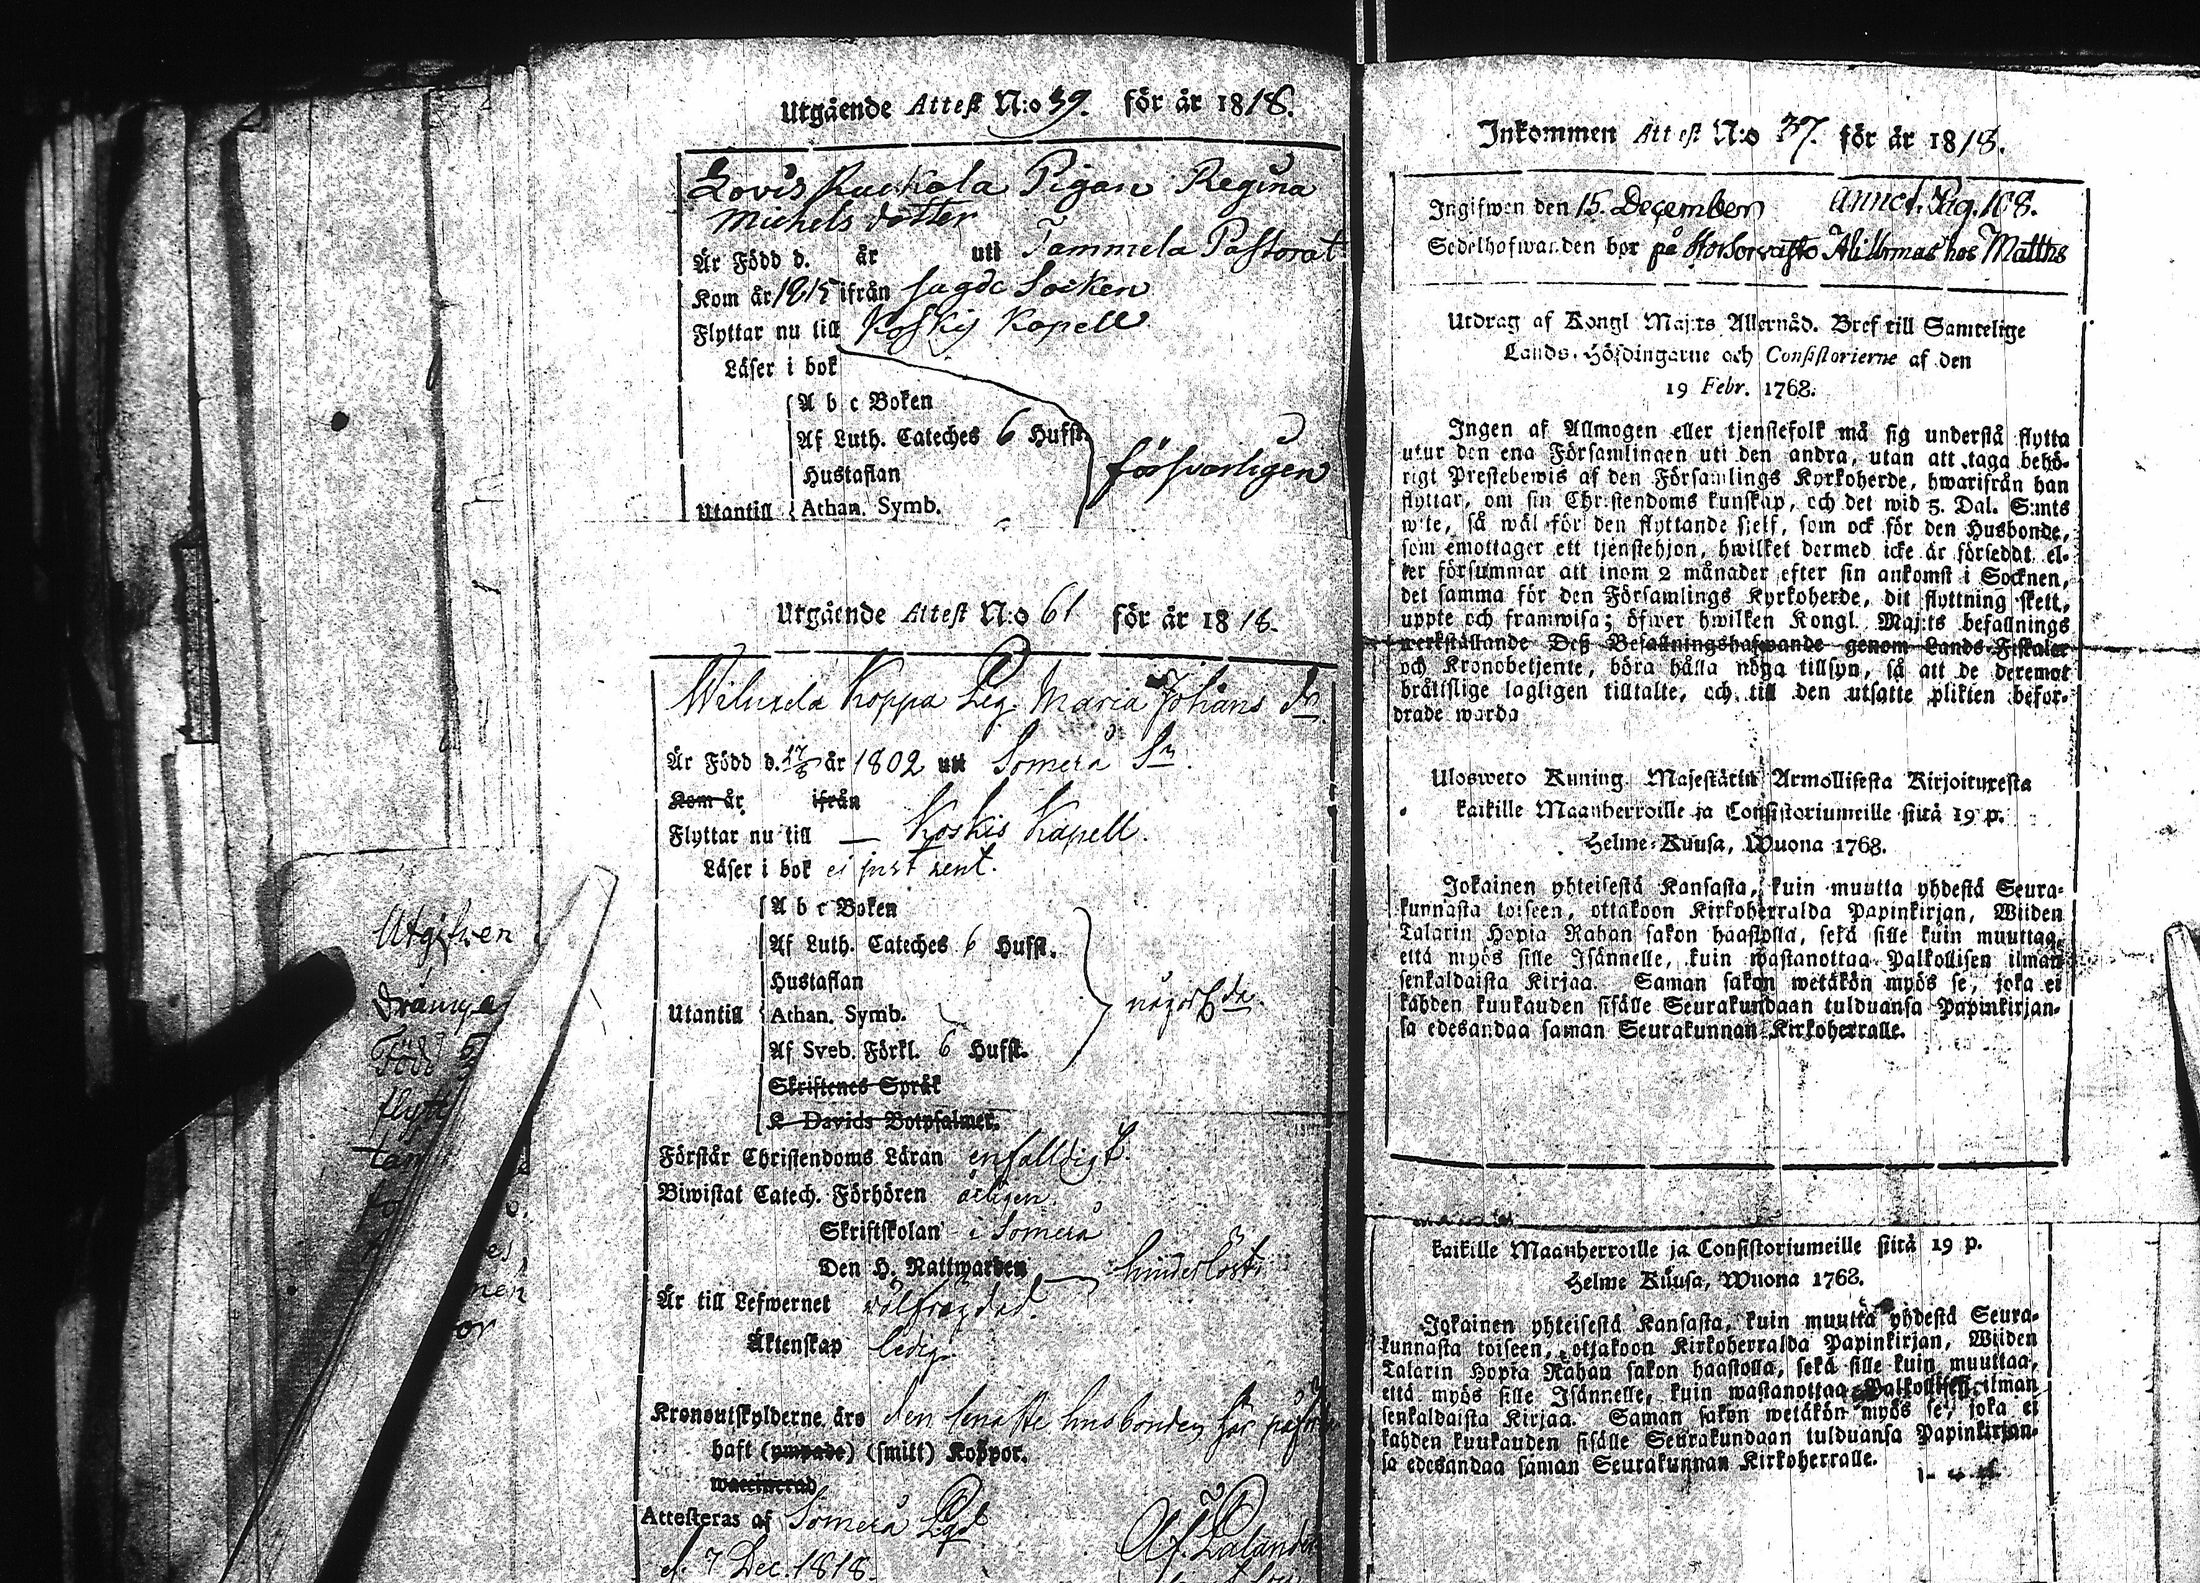 Utgående Attest N:o 39. för år 1818.
Lovis Ruckola Pigan Regina
Michels dotter
Är Född d. år uti Tammela Pastorat
Kom år 1815 ifrån sagde Socken
Flyttar nu till Koskis Kapell
Läser i bok
A b c Boken
Af Luth. Cateches 6 Hufst.
Hustaflan
försvarligen
Utantill Athan. Symb.
Utgående Attest N:o 61 för år 1818.
Koppa Pig. Maria Johans dr
Är Född d. 17/8 år 1802 uti Somero Sn.
Kom år ifrån
Flyttar nu till — Koskis Kapell.
Läser i bok ej just rent.
A b c Boken
Af Luth. Cateches 6 Hufst.
Hustaflan
Utantill Athan. Symb.
Af Sveb. Förkl. 6 Hufst.
Skriftenes Språk
K Davids Botpsalmer.
Förstår Christendoms Läran enfalldigt
Biwistat Catech. Förhören årligen
Skriftskolan i Somero
Den H. Nattwarden hinderlöst
Är till Lefwernet välfrägdad
Äktenskap ledig
Kronoutskylderne äro den senaste husbonden här
haft (ympade) (smitt) Koppor.
waccinerad
Attesteras af Somero Pgd
d. 7 Dec. 1818.
Palander
Utgifven
Född
flytt
Inkommen Attest N:o 37. för år 1818.
Ingifwen den 15. December Annot. Pag. 108.
Sedelhafwanden bor på hos Matths
Utdrag af Kongl Maj:ts Allernåd. Bref till Samtelige
Lands-Höfdingarne och Consistorierne af den
19 Febr. 1768.
Ingen af Allmogen eller tjenstefolk må sig understå flytta
utur den ena Församlingen uti den andra, utan att taga behö-
rigt Prestebewis af den Församlings Kyrkoherde, hwarifrån han
flyttar, om sin Christendoms kunskap, och det wid 5. Dal. S:mts
wite, så wäl för den flyttande sjelf, som ock för den Husbonde,
som emottager ett tjenstehjon, hwilket dermed icke är förseddt, el-
ler försummar att inom 2 månader efter sin ankomst i Socknen,
det samma för den Församlings Kyrkoherde, dit flyttning skett,
uppte och framwisa; öfwer hwilken Kongl. Maj:ts befallnings
werkställande Deß Befallningshafwande genom Lands-Fiskaler
och Kronobetjente, böra hålla nöga tillsyn, så att de deremot
bråttslige lagligen tilltalte, och till den utsatte plikten befor-
drade warda
Ulosweto Kuning. Majestätin Armollisesta Kirjoituxesta
kaikille Maanherroille ja Consistoriumeille siitä 19 p.
Helme-Kuusa, Wuona 1768.
Jokainen yhteisestä Kansasta, kuin muutta yhdestä Seura-
kunnasta toiseen, ottakoon Kirkoherralda Papinkirjan, Wiiden
Talarin Hopia Rahan sakon haastolla, sekä sille kuin muuttaa,
että myös sille Isännelle, kuin wastanottaa Palkollisen ilman
senkaldaista Kirjaa. Saman sakon wetäkön myös se, joka ei
kahden kuukauden sisälle Seurakundaan tulduansa Papinkirjan-
sa edesandaa saman Seurakunnan Kirkoherralle.
kaikille Maanherroille ja Consistoriumeille siitä 19 p.
Helme Kuusa, Wuona 1768.
Jokainen yhteisestä Kansasta, kuin muutta yhdestä Seura-
kunnasta toiseen, ottakoon Kirkoherralda Papinkirjan, Wiiden
Talarin Hopia Rahan sakon haastolla, sekä sille kuin muuttaa,
että myös sille Isännelle, kuin wastanottaa Palkollisen ilman
senkaldaista Kirjaa. Saman sakon wetäkön myös se, joka ei
kahden kuukauden sisälle Seurakundaan tulduansa Papinkirjan-
sa edesandaa saman Seurakunnan Kirkoherralle.